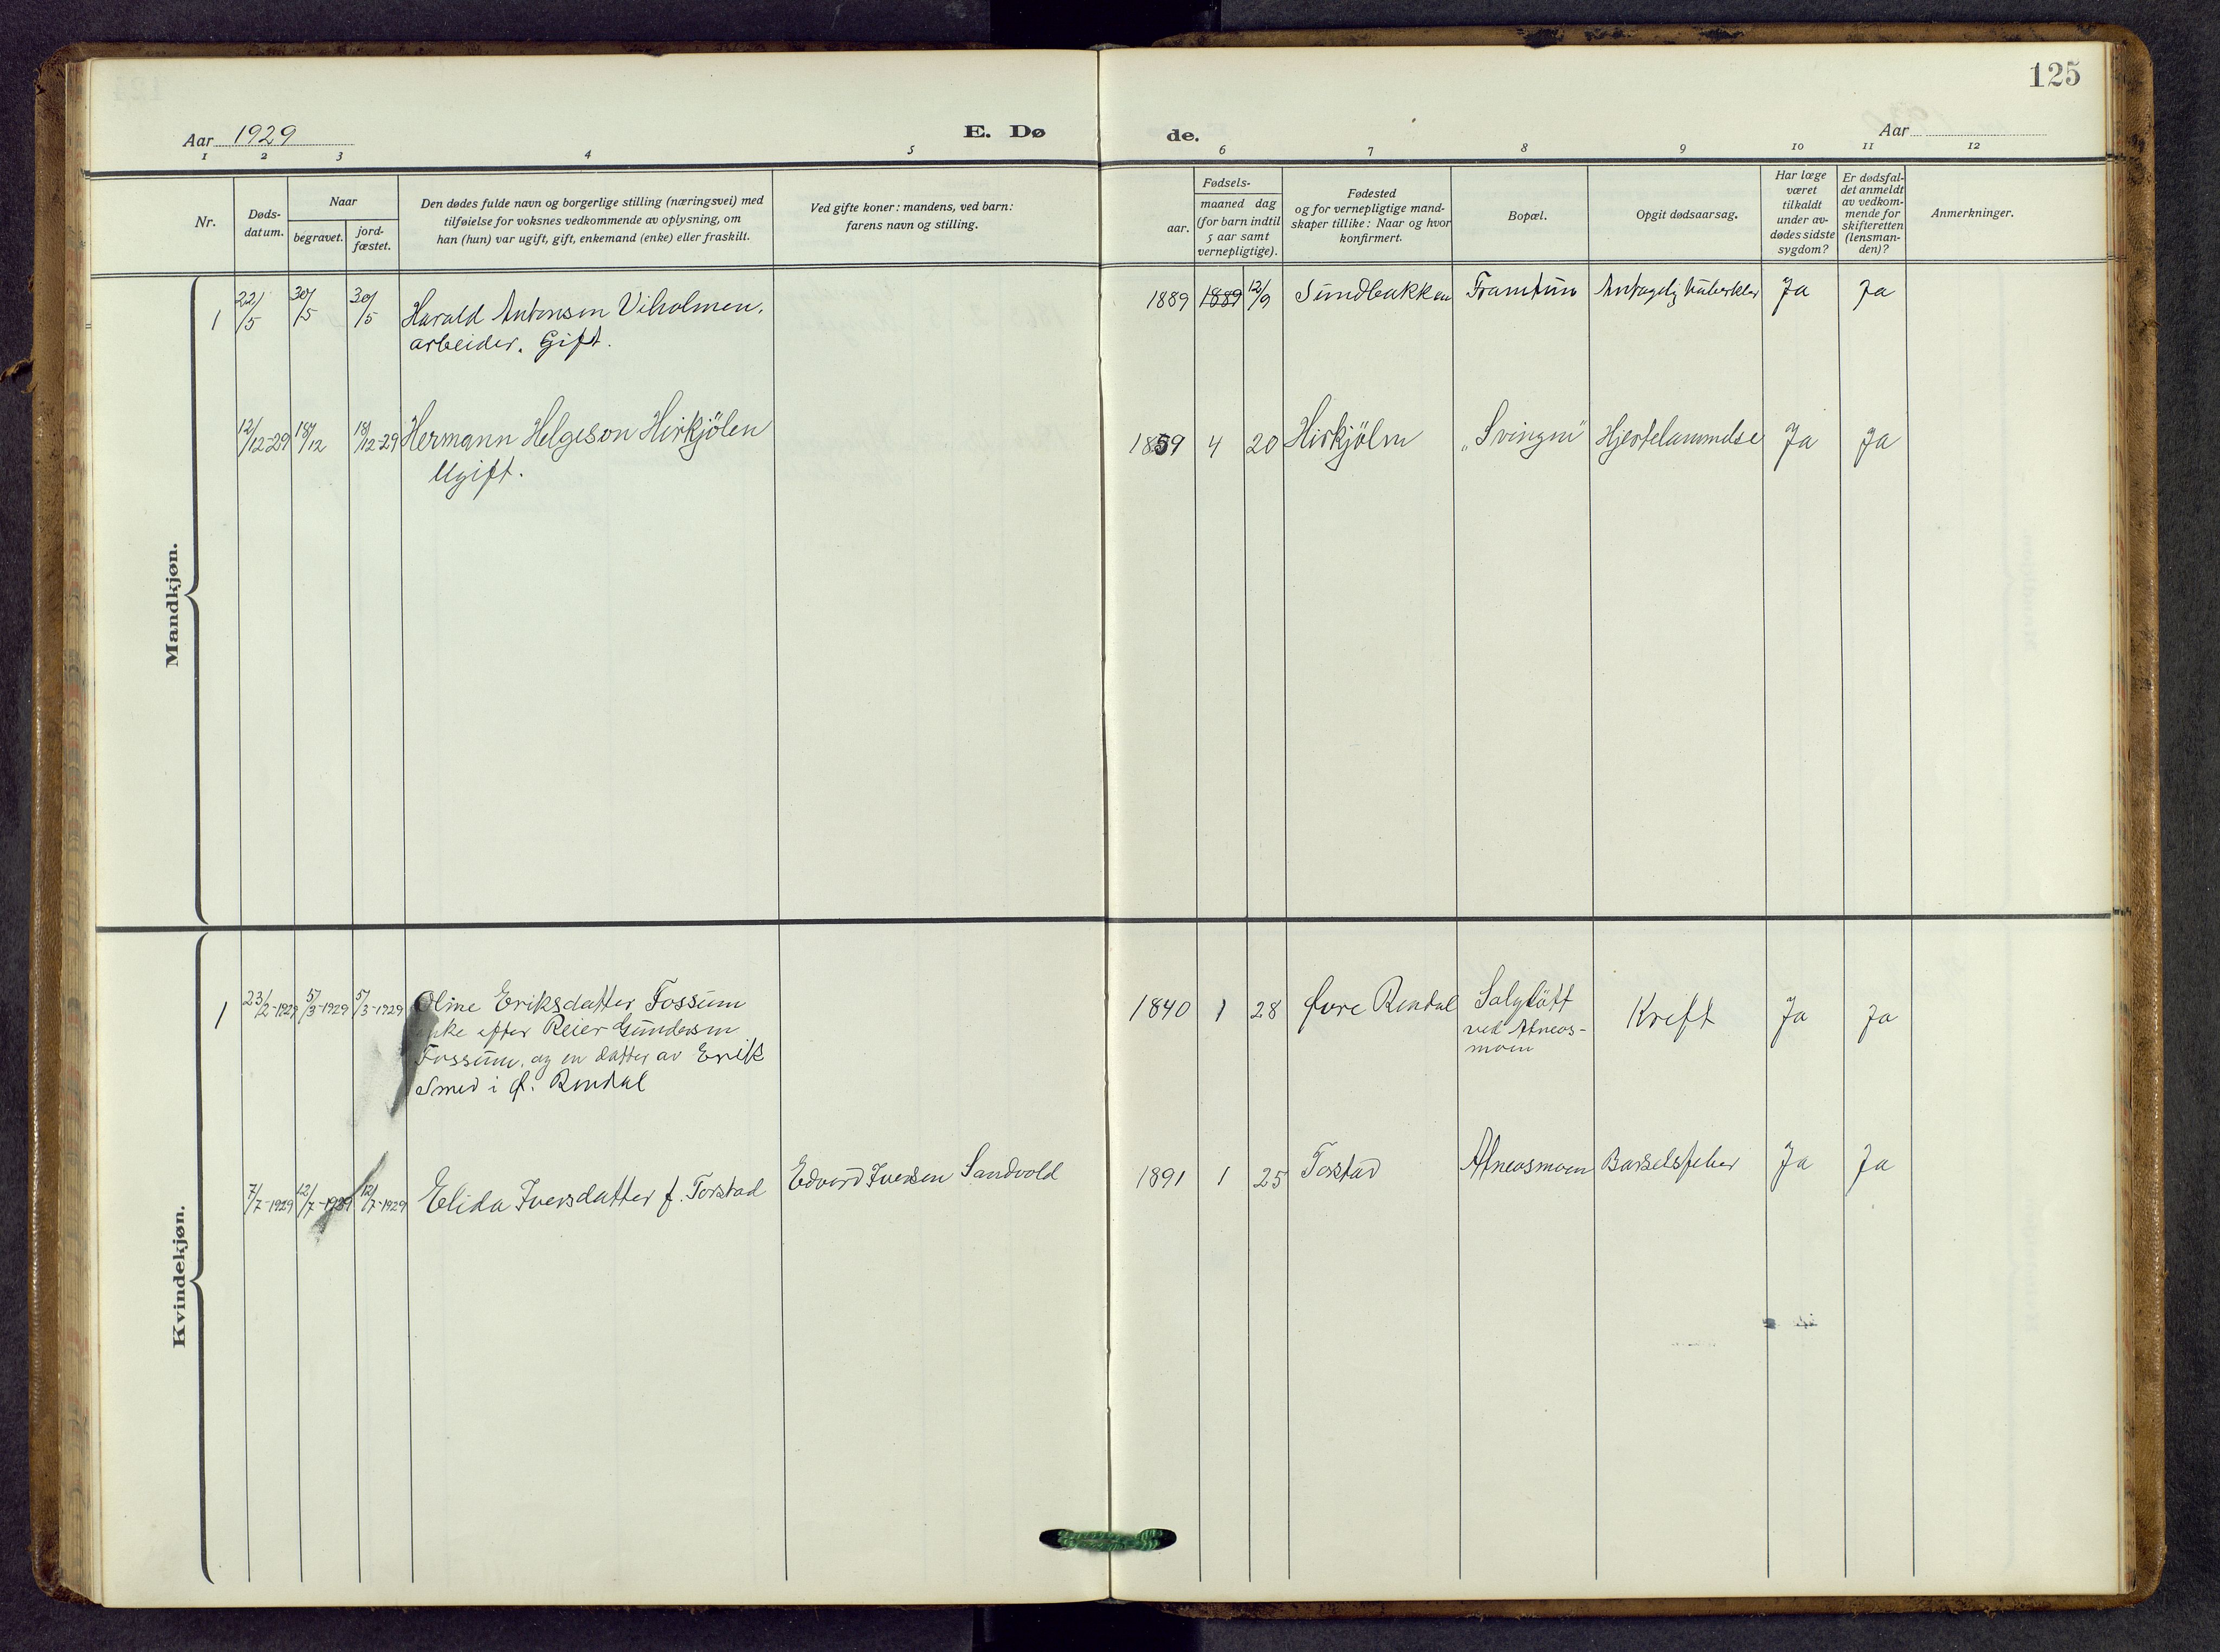 125
Aar 1929
E. Dø
de.
Aar
1 2 3 4 5 6 7 8 9 10 11 12
Nr.
Døds-
datum.
Naar
begravet.
jord-
fæstet.
Den dødes fulde navn og borgerlige stilling (næringsvei) med
tilføielse for voksnes vedkommende av oplysning, om
han (hun) var ugift, gift, enkemand (enke) eller fraskilt.
Ved gifte koner: mandens, ved barn:
farens navn og stilling.
aar.
Fødsels-
maaned dag
(for barn indtil
5 aar samt
vernepligtige).
Fødested
og for vernepligtige mand-
skaper tillike: Naar og hvor
konfirmert.
Bopæl.
Opgit dødsaarsag.
Har læge
været
tilkaldt
under av-
dødes sidste
sygdom?
Er dødsfal-
det anmeldt
av vedkom-
mende for
skifteretten
(lensman-
den)?
Anmerkninger.
Mandkjøn.
1 22/5 30/5 30/5 Harald Antonsen Viholmen. 1889 1889 12/9 Sundbakken Framtun Antagelig tuberklos Ja Ja
arbeider. Gift.
12/12-29 18/12 18/12-29 Hermann Helgeson Hirkjölen 1859 4 20 Hirkjölen „Svingen" Hjertelammelse Ja Ja
Ugift.
Kvindekjøn.
1 23/2-1929 5/3-1929 5/3-1929 Oline Eriksdatter Fossum 1840 1 28 Øvre Rendal ved Atneos-
moen Kreft Ja Ja
enke efter Reier Gundersen
Fossum, og en datter av Erik
Smed i Ø. Rendal
7/7-1929 12/7-1929 12/7-1929 Elida Iversdatter f. Torstad Edvard Iversen Sandvold 1891 1 25 Torstad Atneosmoen Barselsfeber Ja Ja